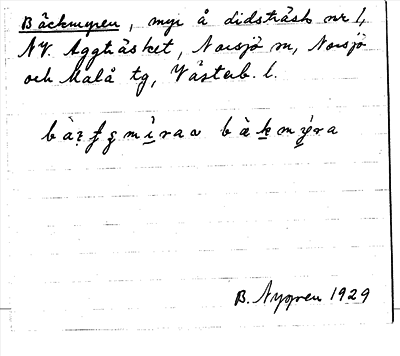 Bäckmyren, myr å didsträsk nr 1,
NV. Aggträsket, Norsjö sn, Norsjö
och Malå tg, Västerb. l.
bàkmýra
B. Nygren 1929